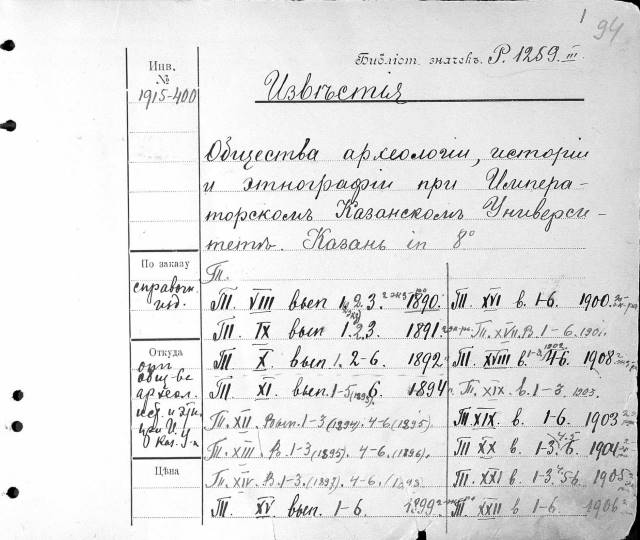 1
94
Библіот. значекъ. Р. 1259. III.
Инв.
№
1915-400
Извѣстія
Общества археологіи, исторіи
и этнографіи при Импера-
торскомъ Казанскомъ Универси-
тетѣ. Казань in 8°
По заказу
справочн.
Откуда
общ-ва
археол.
ист. и
при И.
Каз. У-
Цѣна
Т.
Т. VIII вып 1.2.3. 1890.
Т. IX вып 1.2.3. 1891.
Т. X. вып. 1. 2-6. 1892
Т. XI. вып. 1-5 (1893). 6. 1894
Т. XII. Вып. 1-3 (1894). 4-6 (1895).
Т. XIII. В. 1-3 (1895). 4-6. (1896).
Т. XIV. В. 1-3. (1897). 4-6. (1898.
Т. XV вып. 1-6. 1899
Т. XVI в. 1-6. 1900.
Т. XVII. В. 1-6. 1901.
Т. XVIII в. 1-3. 1902 4-6. 1908
Т. XIX. в. 1-3. 1903.
Т. XIX. в. 1-6. 1903
Т. XX в. 1-3. 6. 1904
Т. XXI в. 1-3. 5-6. 1905
Т. XXII в. 1-6. 1906